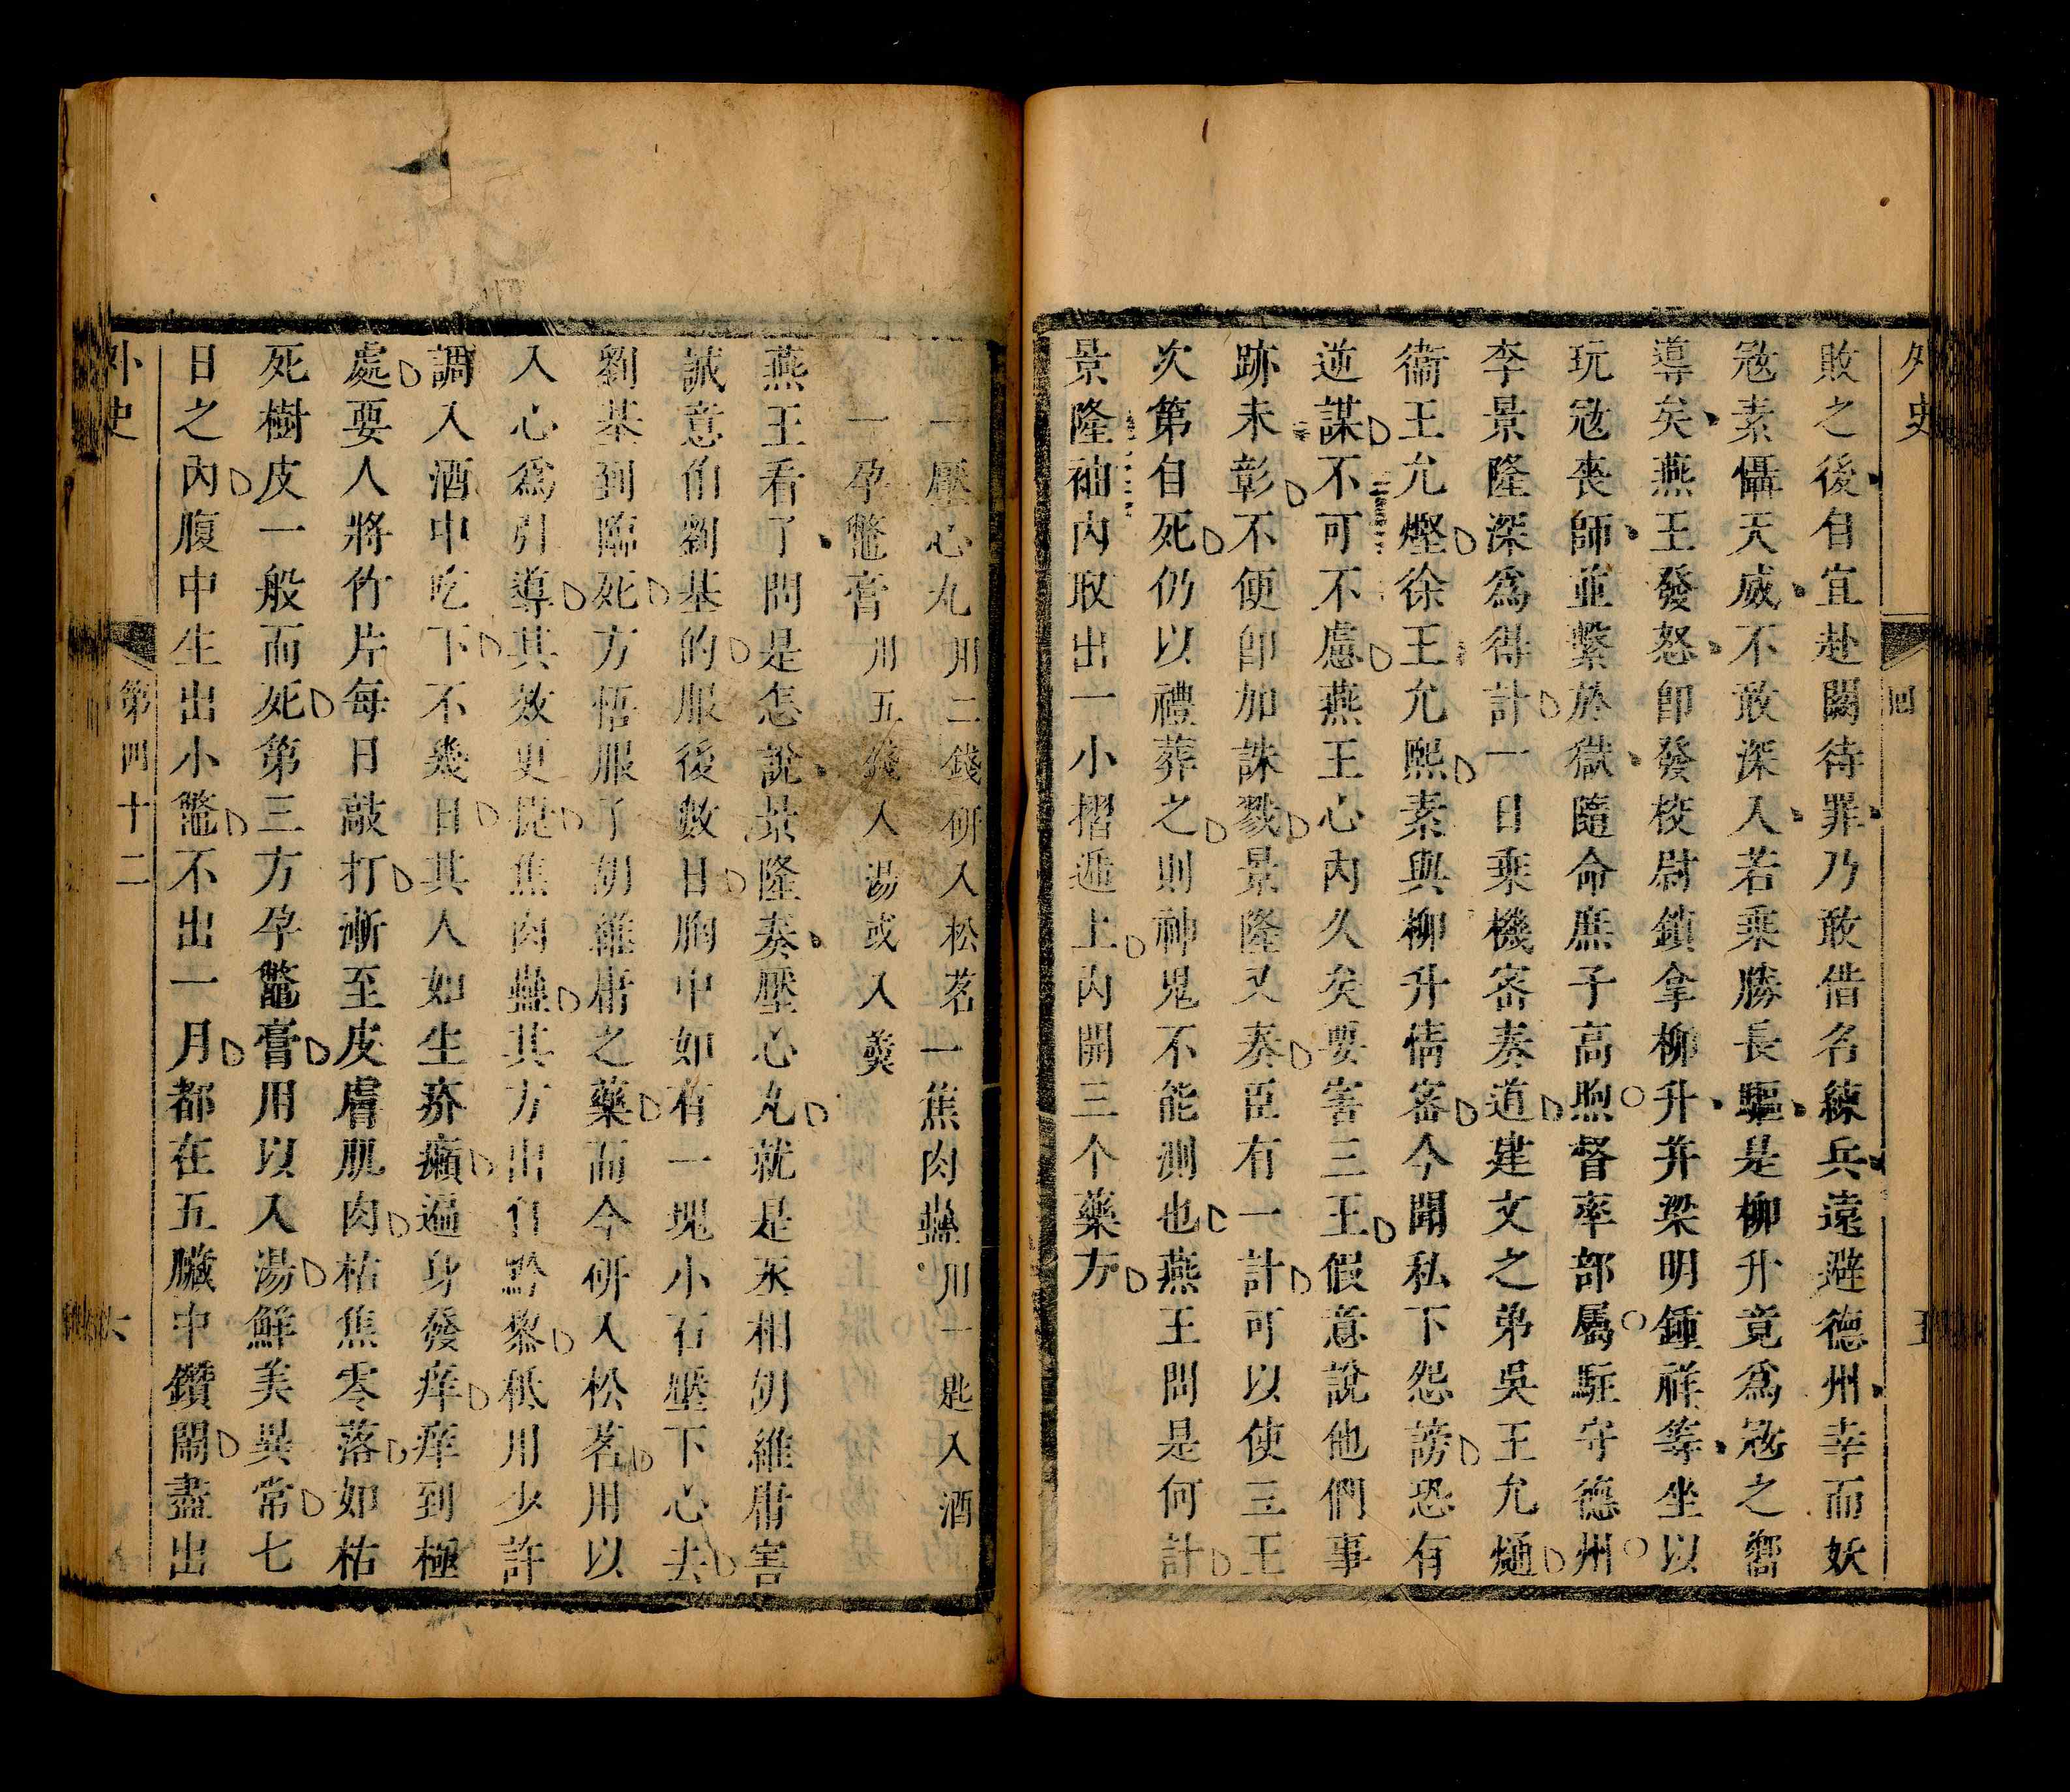 外史
回
五
敗之後自宜赴闕待罪乃敢借名練兵遠避德州幸而妖
宼素懾天威不敢深入若乘勝長驅是柳升竟爲宼之嚮
導矣燕王發怒卽發校尉鎖拿柳升并梁明鍾祥等坐以
玩宼喪師並繫於獄隨命庶子高煦督率部屬駐守德州
李景隆深爲得計一日乘機密奏道建文之弟吳王允熥
衞王允熞徐王允熙素與柳升情密今聞私下怨謗恐有
逆謀不可不慮燕王心內久矣要害三王假意說他們事
跡未彰不便卽加誅戮景隆又奏臣有一計可以使三王
次第自死仍以禮葬之則神鬼不能測也燕王問是何計
景隆袖內取出一小摺遞上內開三个藥方
一壓心丸用二錢硏入松茗一蕉肉蠱用一匙入酒
一孕鼈膏用五錢入湯或入羹
燕王看了問是怎說景隆奏壓心丸就是丞相胡維庸害
誠意伯劉基的服後數日胸中如有一塊小石壓下心去
劉基到臨死方悟服了胡維庸之藥而今硏入松茗用以
入心爲引導其效更捷蕉肉蠱其方出自黔黎秪用少許
調入酒中吃下不幾日其人如生疥癩遍身發痒痒到極
處要人將竹片每日敲打漸至皮膚肌肉枯焦零落如枯
死樹皮一般而死第三方孕鼈膏用以入湯鮮美異常七
日之內腹中生出小鼈不出一月都在五臟中鑽鬧盡出
外史
第四十二
六